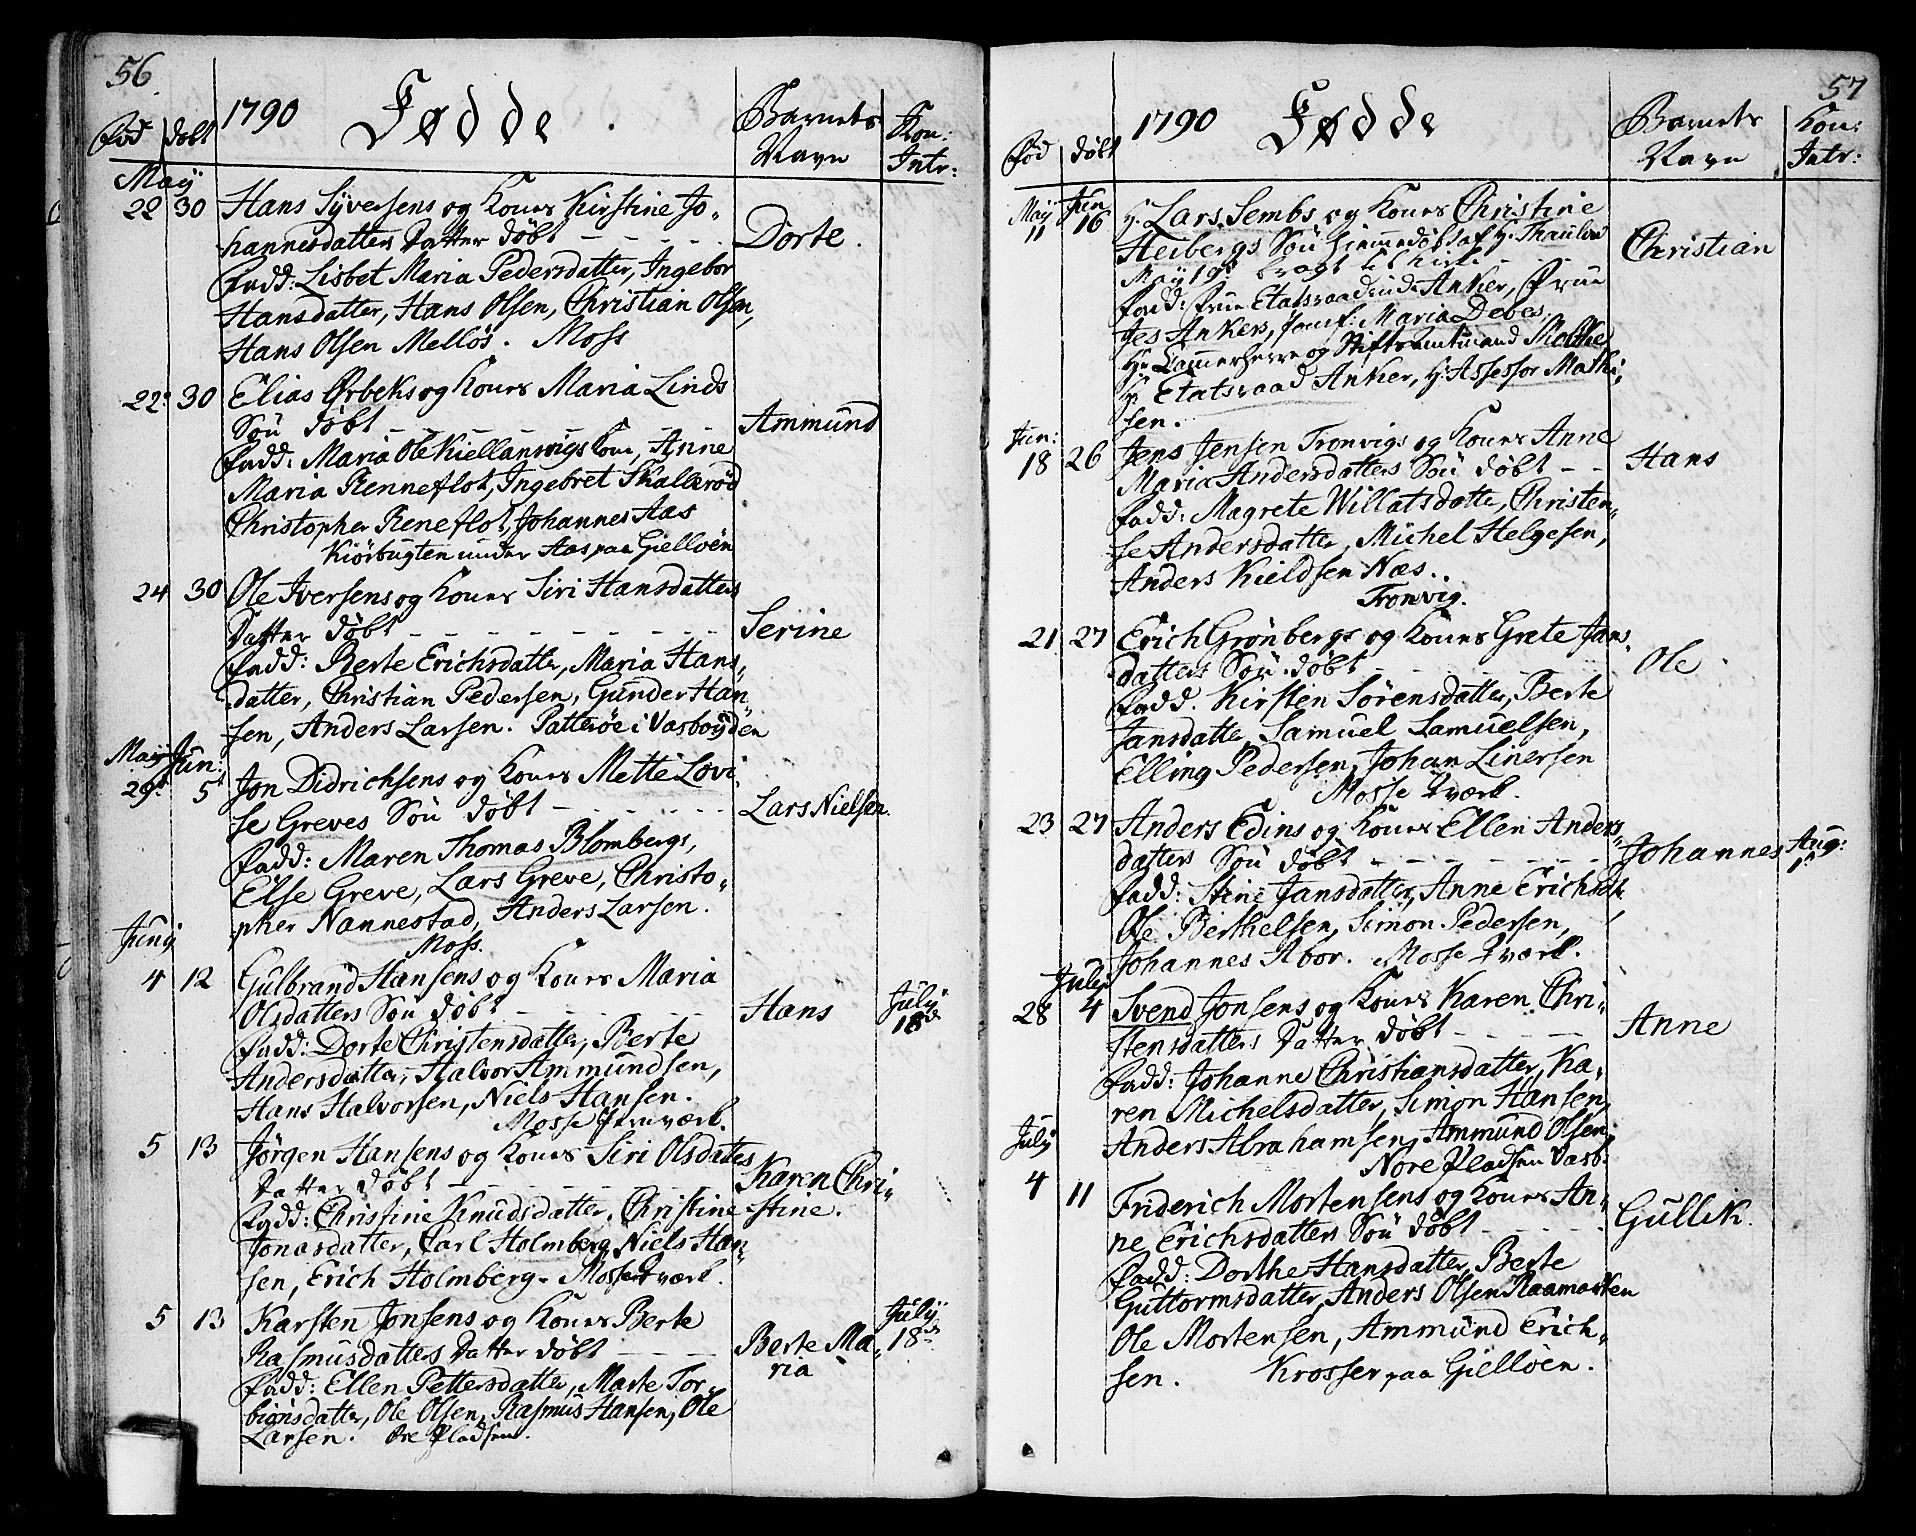 56
1790 Fødde Barnets Navn Kon: Intr:
Fød døbt
May
22 30 Hans Syversens og Kones Kirstine Jo-
hannesdatters Datter døbt Dorte.
Fadd: Lisbet Maria Pedersdatter, Ingebor
Hansdatter, Hans Olsen, Christian Olsen,
Hans Olsen Melløs. Moss
22 30 Elias Ørbeks og Kones Maria Linds
Søn døbt Ammund
Fadd: Maria Ole Kiellansvigs Kone, Anne
Maria Renneflot, Ingebret Skallerød
Christopher Reneflot, Johannes Aas
Kiørbugten under Aas paa Gielløen
24 30 Ole Iversens og Kones Siri Hansdatters
Datter døbt Serine
Fadd: Berte Erichsdatter, Maria Hans-
datter, Christian Pedersen, Gunder Han-
sen, Anders Larsen. Patterøe i Vasbøyden
May Jun:
29 5 Jon Didrichsens og Kones Mette Lovi-
se Greves Søn døbt Lars Nielsen.
Fadd: Maren Thomas Blombergs,
Else Greve, Lars Greve, Christo-
pher Nannestad, Anders Larsen.
Moss.
Juny
4 12 Gulbrand Hansens og Kones Maria
Olsdatters Søn døbt Hans July 18
Fadd: Dorte Christensdatter, Berte
Andersdatter, Halvor Ammundsen,
Hans Halvorsen, Niels Hansen.
Mosse Jernværk.
5 13 Jørgen Hansens og Kones Siri Olsdatters
Datter døbt Karen Chri-
Fadd: Christine Knudsdatter, Christine stine.
Jonasdatter, Carl Holmberg, Niels Han-
sen, Erich Holmberg. Mosse værk.
5 13 Karsten Jonsens og Kones Berte July
Rasmusdatters Datter døbt Berte Ma- 18
Fadd: Ellen Pettersdatter, Marte Tor- ria
biønsdatter, Ole Olsen, Rasmus Hansen, Ole
Larsen. Øre Pladsen.
57
1790 Fødde Barnets Navn Kon: Intr:
Fød døbt
May 11 Jun 16 Hr. Lars Sembs og Kones Christine
Heibergs Søn hiemmedøbt af Hr. Thaulow Christian
May 19 bragt til Kirke
Fadd: Frue Etatsraadinde Anker, Frue
Jes Ankers, Jomf: Maria Debes,
Hr. Kammerherre og Stiftsamtmand Moltke
Hr. Etatsraad Anker, Hr. Assessor Mathi-
sen.
Jun:
18 26 Jens Jensen Tronvigs og Kones Anne
Maria Andersdatters Søn døbt Hans
Fadd: Magrete Willatsdatte, Christen-
se Andersdatter, Michel Helgesen,
Anders Kieldsen Næs.
Tronvig.
21 27 Erich Grønbergs og Kones Grete Jans-
datters Søn døbt Ole
Fadd. Kirsten Sørensdatter, Berte
Jansdatter, Samuel Samuelsen,
Elling Pedersen, Johan Linersen
Mosse værk.
23 27 Anders Edins og Kones Ellen Anders-
datters Søn døbt Johannes Aug: 1
Fadd: Stine Jansdatter, Anne Erichsdt.
Ole Berthelsen, Simon Pedersen,
Johannes Abor. Mosse værk.
July
28 4 Svend Jonsens og Kones Karen Chri-
stensdatters Datter døbt Anne
Fadd: Johanne Christiansdatter, Ka-
ren Michelsdatter, Simon Hansen,
Anders Abrahamsen, Ammund Olsen,
Nore Pladsen Vasb:
July
4 11 Friderich Mortensens og Kones An-
ne Erichsdatters Søn døbt Gullik.
Fadd: Dorthe Hansdatter, Berte
Guttormsdatter, Anders Olsen Raamarken
Ole Mortensen, Ammund Erich-
sen. Krosser paa Gielløen.